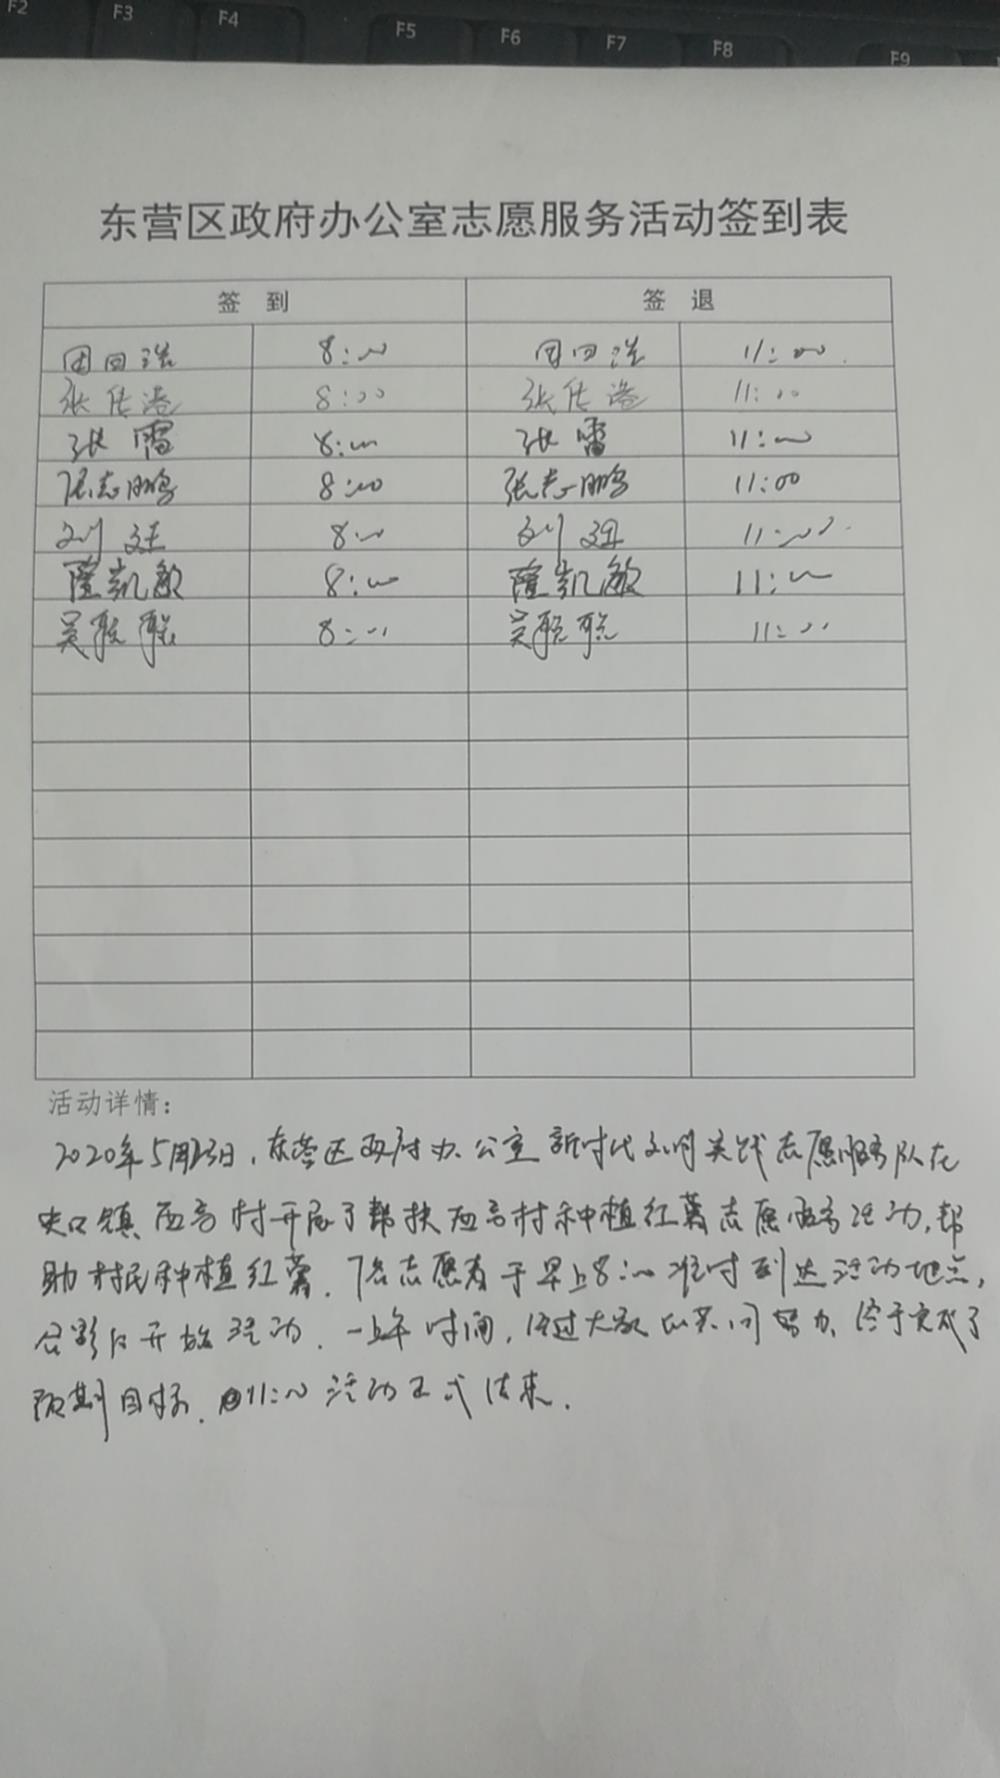 F2 F3 F4 F5 F6 F7 F8 F9
东营区政府办公室志愿服务活动签到表
签 到 签 退
8:00 11:00
张传港 8:00 张传港 11:00
张雷 8:00 张雷 11:00
张志鹏 8:00 张志鹏 11:00
刘 8:00 刘 11:00
隆凯敏 8:00 隆凯敏 11:00
吴聪聪 8:00 吴聪聪 11:00
活动详情：
2020年5月23日，东营区政府办公室新时代文明实践志愿服务队在
史口镇西高村开展了帮扶西高村种植红薯志愿服务活动，帮
助村民种植红薯。7名志愿者于早上8:00准时到达活动地点，
合影后开始活动。一上午时间，经过大家的共同努力，终于完成了
预期目标。11:00活动正式结束。